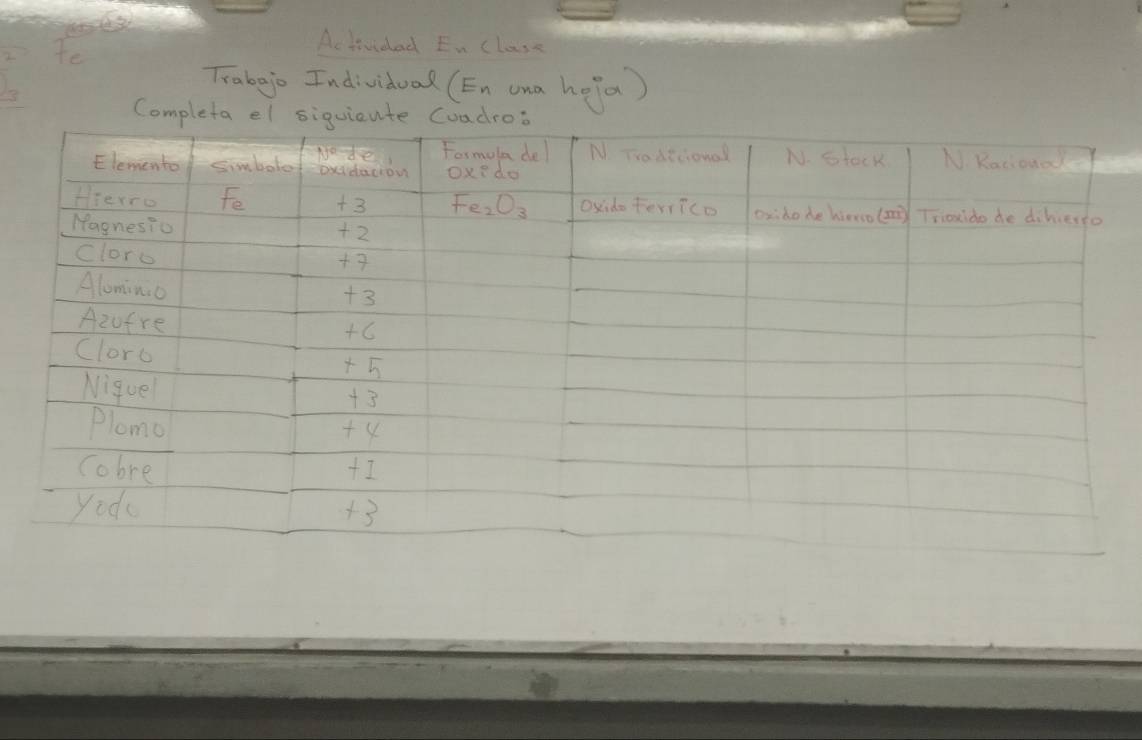 Fe
2
3
Actividad En Clase
Trabajo Individual (En una hoja)
Completa el siguiente Cuadro:
Elemento Simbolo Nº de oxidacion Formula del Oxido N. Tradicional N. Stock N. Racional
Hierro Fe +3 Fe₂O₃ Oxido Ferrico Oxido de hierro (III) Trioxido de dihierro
Magnesio +2
Cloro +7
Aluminio +3
Azufre +6
Cloro +5
Niquel +3
Plomo +4
Cobre +1
Yodo +3